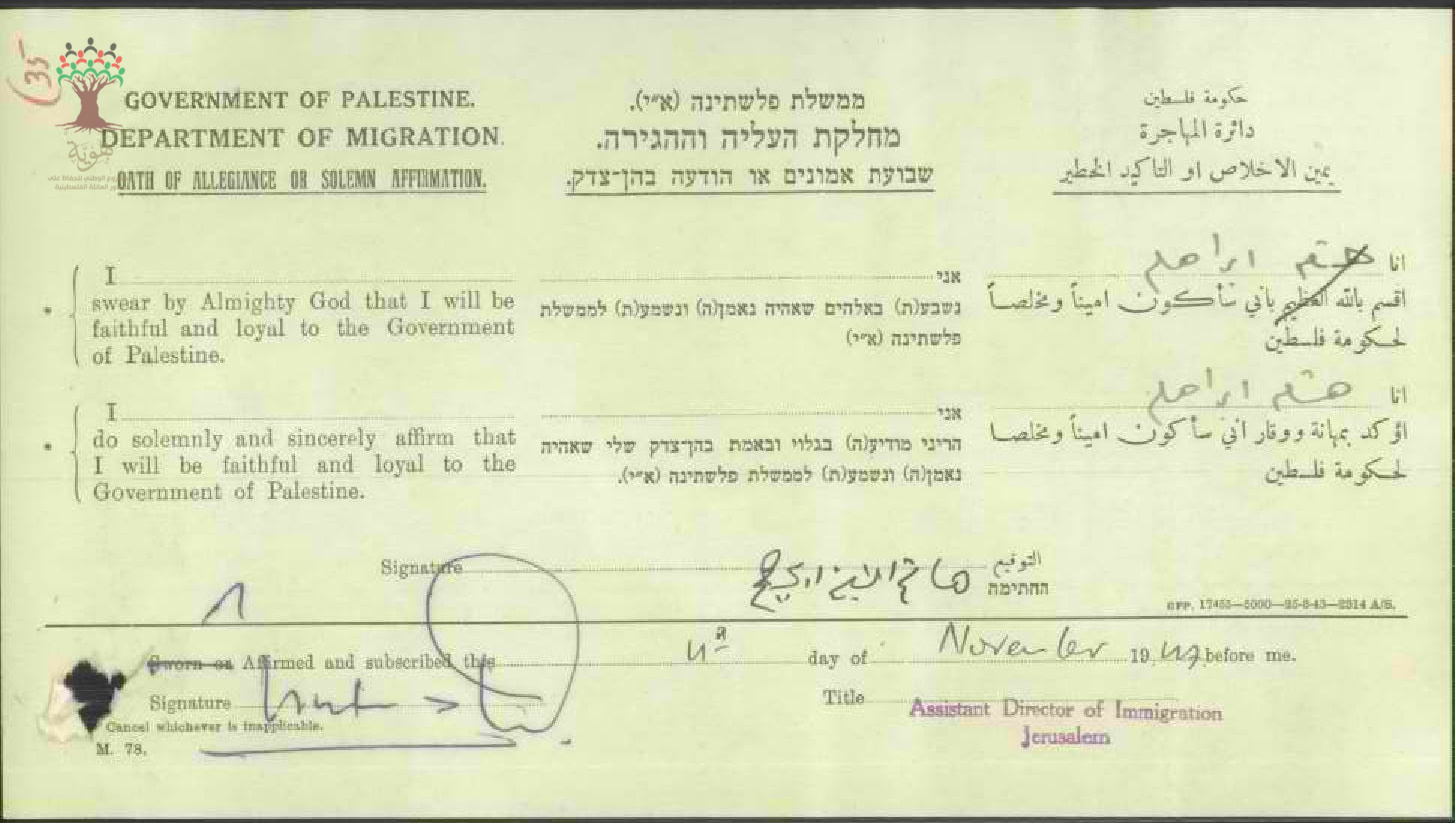 (35-
GOVERNMENT OF PALESTINE.
DEPARTMENT OF MIGRATION.
OATH OF ALLEGIANCE OR SOLEMN AFFIRMATION.
ממשלת פלשתינה (א״י).
מחלקת העליה וההגירה.
שבועת אמונים או הודעה בהן־צדק.
حكومة فلسطين
دائرة المهاجرة
يمين الاخلاص او التاكيد الخطير
هوية
I
swear by Almighty God that I will be
faithful and loyal to the Government
of Palestine.
אני
נשבע(ת) באלהים שאהיה נאמן(ה) ונשמע(ת) לממשלת
פלשתינה (א״י)
انا ابراهيم
اقسم بالله العظيم بأني سأكون اميناً ومخلصاً
لحكومة فلسطين
I
do solemnly and sincerely affirm that
I will be faithful and loyal to the
Government of Palestine.
אני
הריני מודיע(ה) בגלוי ובאמת בהן־צדק שלי שאהיה
נאמן(ה) ונשמע(ת) לממשלת פלשתינה (א״י).
انا ابراهيم
اؤكد بمهانة ووقار اني سأكون اميناً ومخلصا
لحكومة فلسطين
Signature
التوقيع
החתימה
GPP. 17455—5000—25-8-43—2314 A/S.
Sworn or Affirmed and subscribed this day of November 1947 before me.
Signature
Title Assistant Director of Immigration
Jerusalem
Cancel whichever is inapplicable.
M. 78.